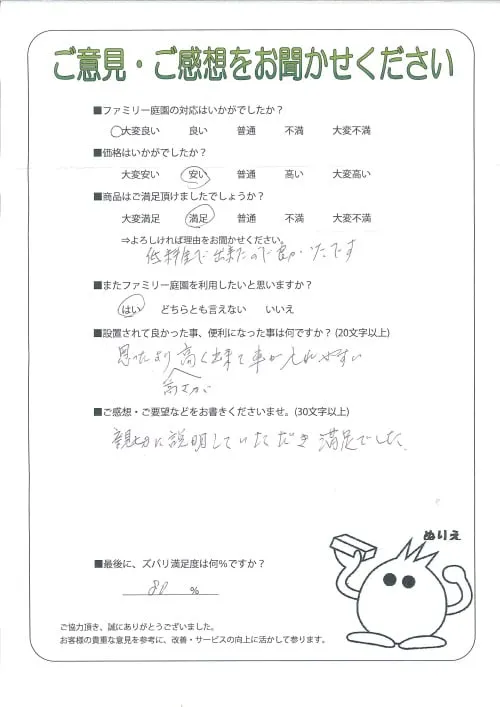 ご意見・ご感想をお聞かせください
■ファミリー庭園の対応はいかがでしたか？
大変良い 良い 普通 不満 大変不満
■価格はいかがでしたか？
大変安い 安い 普通 高い 大変高い
■商品はご満足頂けましたでしょうか？
大変満足 満足 普通 不満 大変不満
⇒よろしければ理由をお聞かせください。
低料金で出来たので良かったです
■またファミリー庭園を利用したいと思いますか？
はい どちらとも言えない いいえ
■設置されて良かった事、便利になった事は何ですか？(20文字以上)
思ったより高く出来て車が入れやすい
高さが
■ご感想・ご要望などをお書きくださいませ。(30文字以上)
親切に説明していただき満足でした
ぬりえ
■最後に、ズバリ満足度は何%ですか？
80 %
ご協力頂き、誠にありがとうございました。
お客様の貴重な意見を参考に、改善・サービスの向上に活かして参ります。